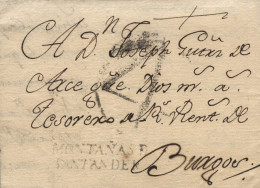 A D.ⁿ Joseph Gutrz de
Arce que Dios m.s a.s
Tesorero de R.s Rent.s de
MONTAÑAS D
SANTANDER
Burgos